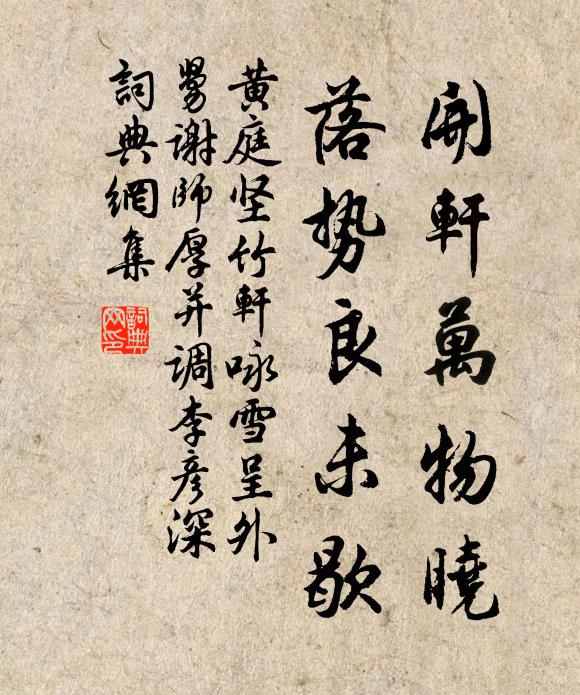 開軒萬物曉
落势良未歇
黄庭坚竹軒咏雪呈外
舅谢師厚并調李彦深
詞典網集
詞典網印